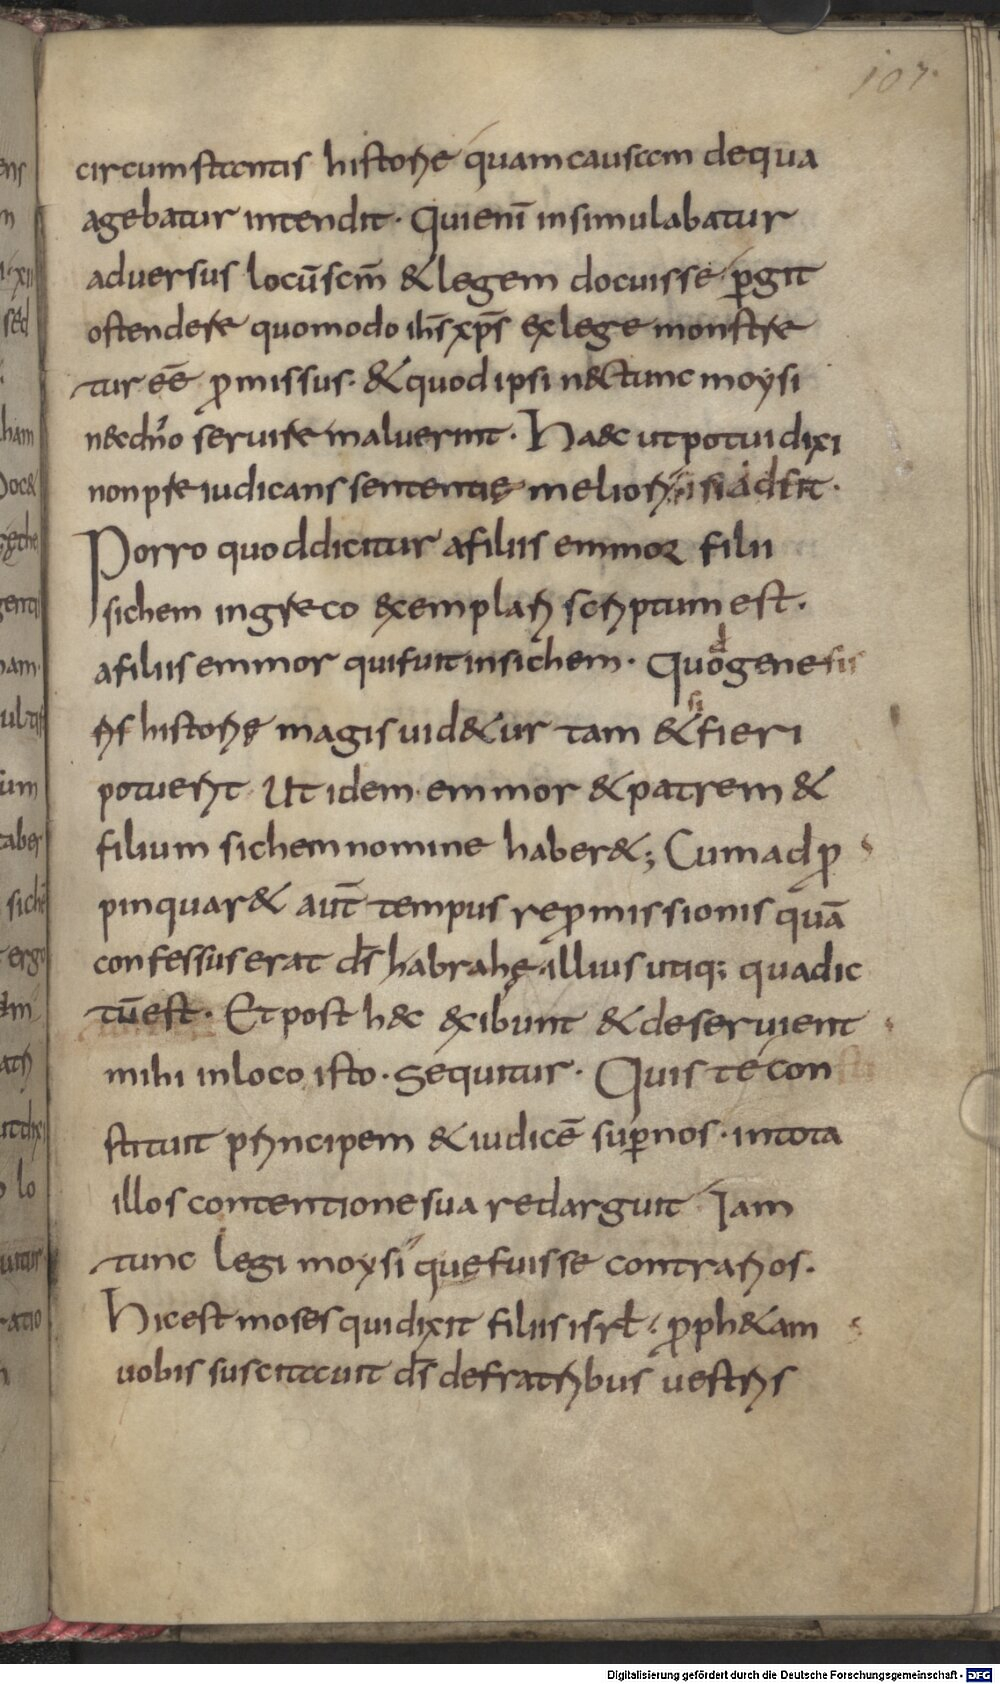 107.
circumstantis historie quam causam de qua
agebatur intendit. Qui enī insimulabatur
aduersus locū scm̄ & legem docuisse pgit
ostendere quomodo ih̄s xp̄s ex lege monstre
tur eē̄ p̱missus. & quod ipsi n&tunc moysi
n&dn̄o seruire maluerint. Haec ut potui dixi
non pre iudicans sententię melioris si adsit.
Porro quod dicitur a filiis emmor filii
sichem in greco exemplari scriptum est.
a filiis emmor qui fuit in sichem. Quod genesis
historię magis uid&ur tam &si fieri
potuerit Ut idem emmor & patrem &
filium sichem nomine haber&; Cum adp̱
pinquar& aut̄ tempus rep̱missionis quā
confessus erat ds̄ habrahę illius utiq; qua dic
tū est. Et post h&c exibunt & deseruient
mihi in loco isto. Sequitur. Quis te con
stituit principem & iudicē sup̱ nos. in tota
illos contentione sua redarguit Iam
tunc legi moysi quefuisse contrarios.
Hic est moses qui dixit filiis isrl̄. p̱ph&am
uobis suscitauit ds̄ de fratribus uestris
Digitalisierung gefördert durch die Deutsche Forschungsgemeinschaft - DFG